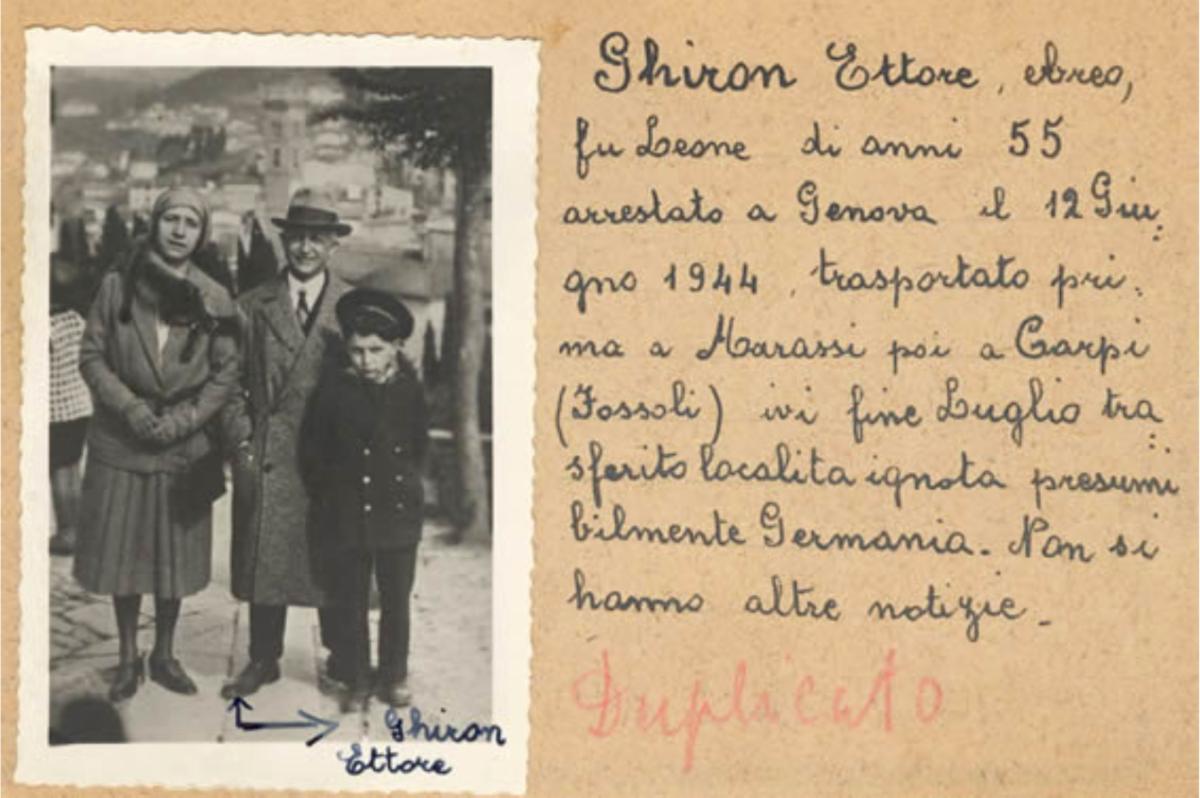 Ghiron Ettore, ebreo,
fu Leone di anni 55
arrestato a Genova il 12 Giu:
gno 1944, trasportato pri:
ma a Marassi poi a Carpi
(Fossoli) ivi fine Luglio tra:
sferito localita ignota presumi
bilmente Germania. Non si
hanno altre notizie.
Duplicato
Ghiron
Ettore